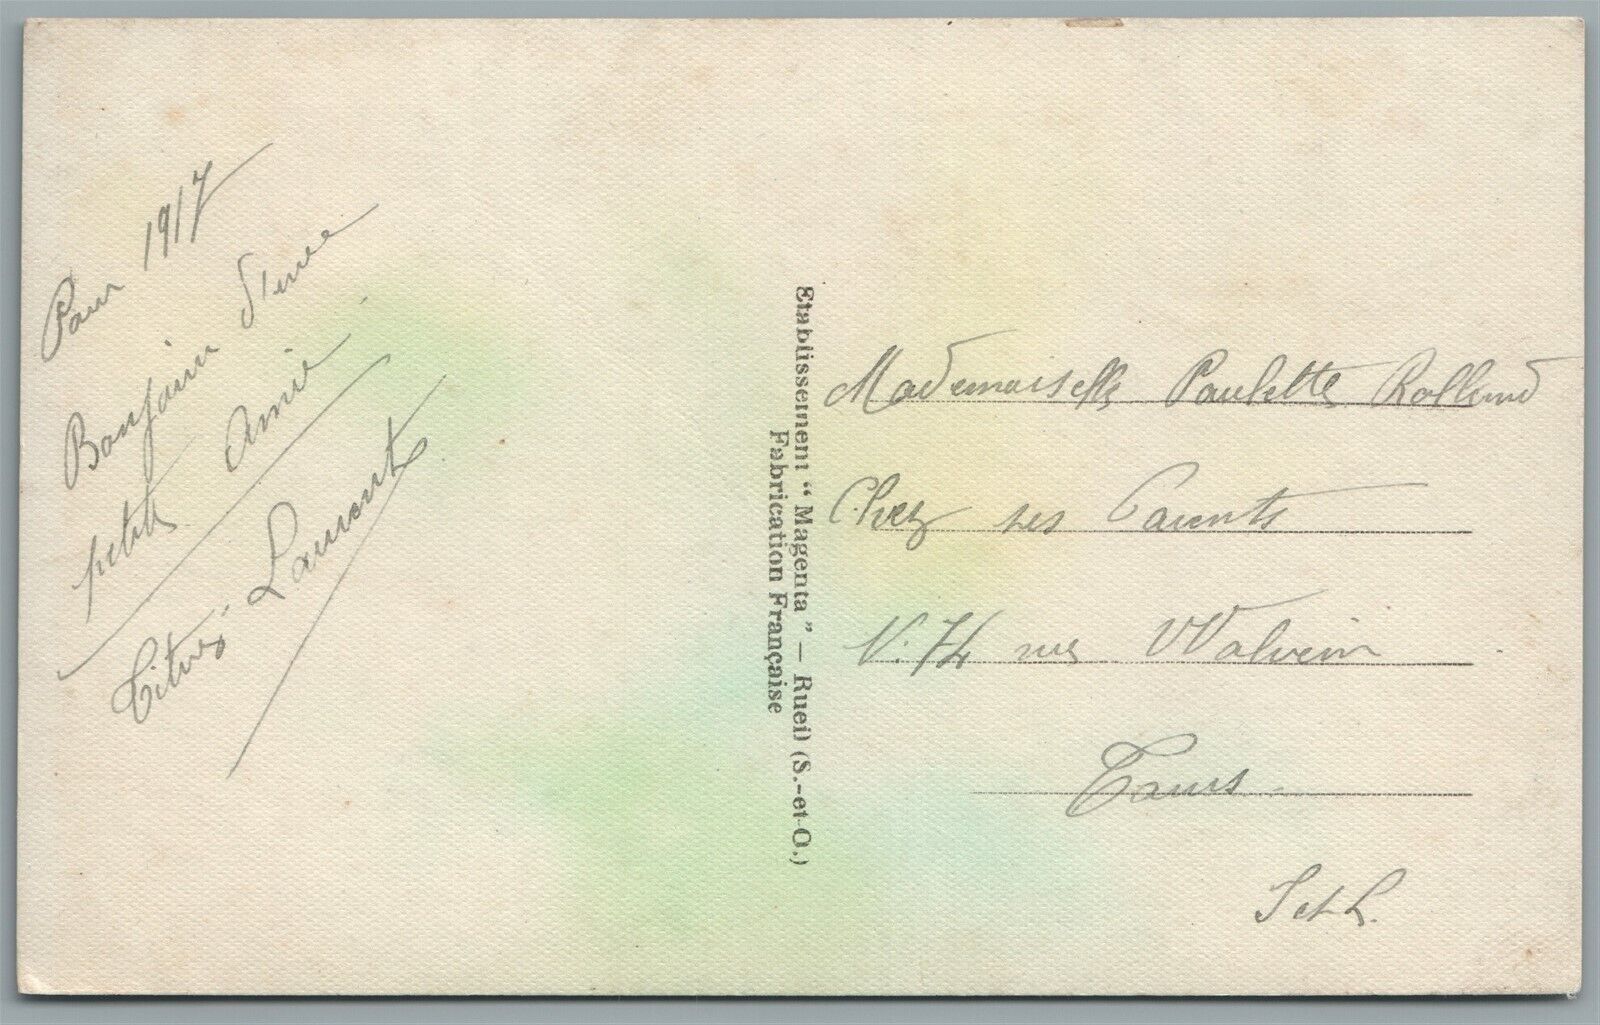 Pour 1917
Bonjour d'une
petite Amie
Laurent
Etablissement "Magenta" – Rueil (S.-et-O.)
Fabrication Française
Mademoiselle Paulette Rolland
Chez ses Parents
N. 74 rue Walvein
Tours
I et L.